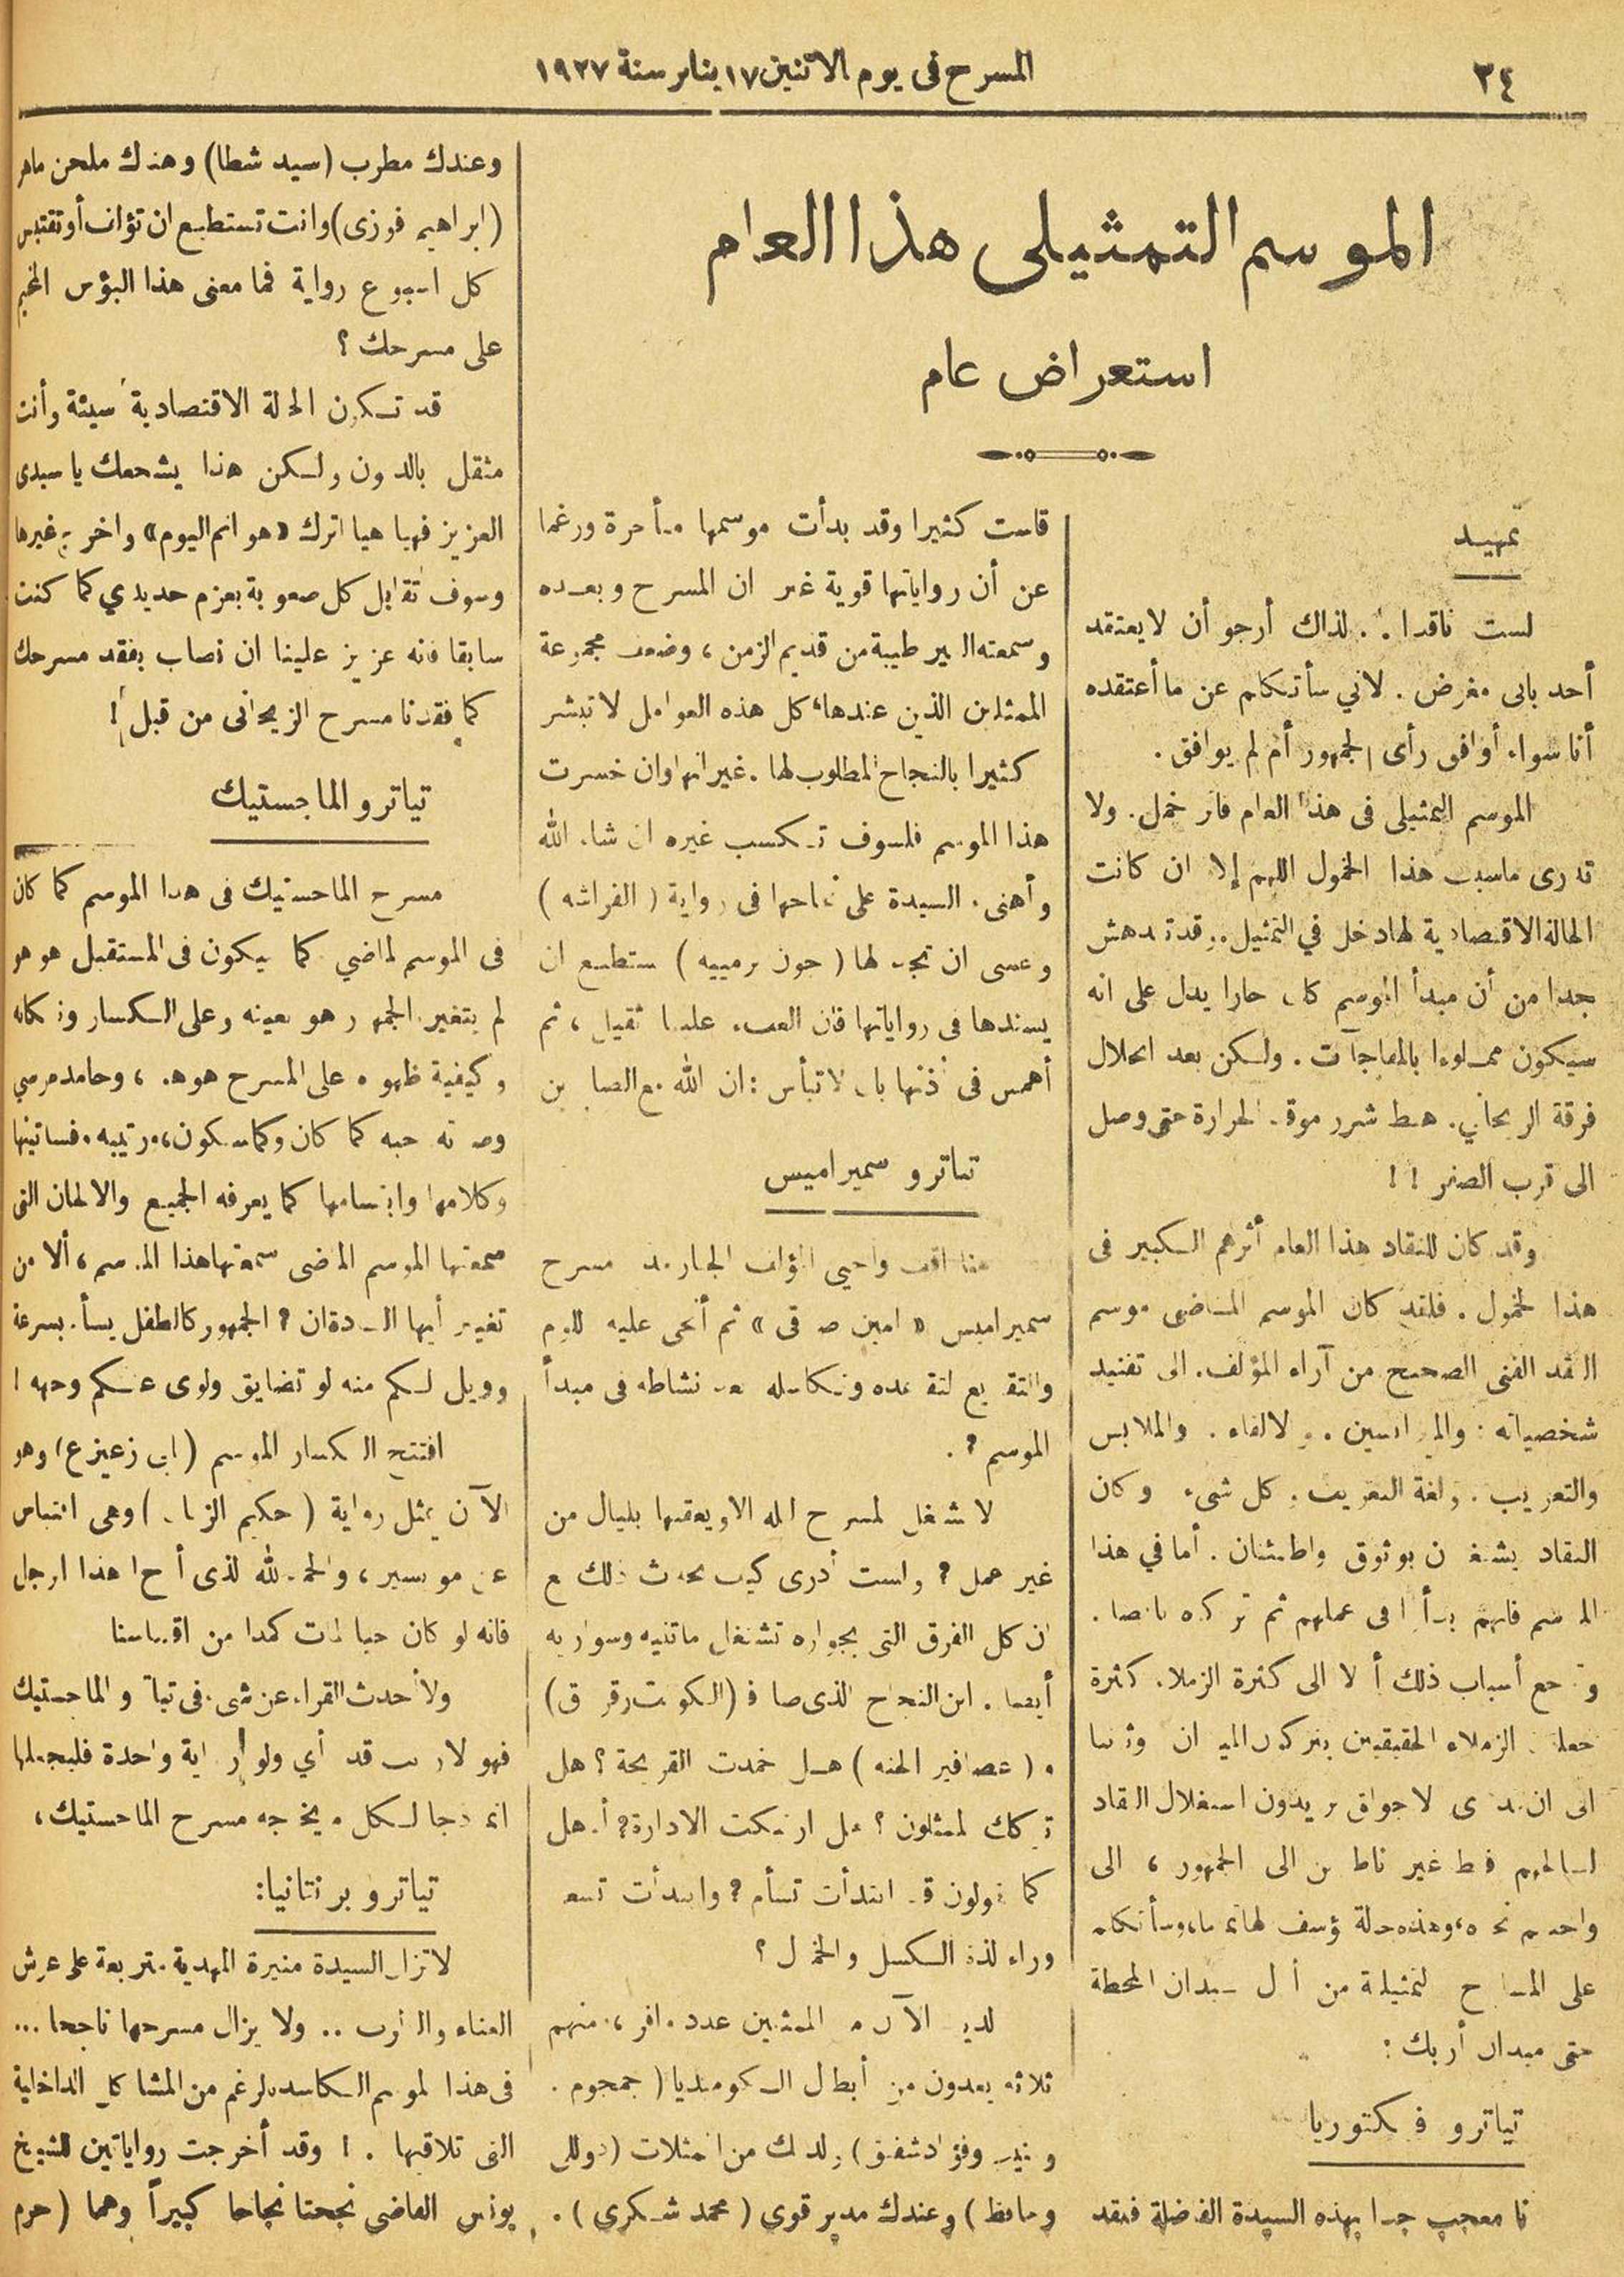 ٣٤
المسرح فى يوم الاثنين ١٧ يناير سنة ١٩٢٧
الموسم التمثيلى هذا العام
استعراض عام
تمهيد
لست ناقدا . . لذلك أرجو أن لا يعتقد
أحد بانى مغرض . لاني سأتكلم عن ما أعتقده
أنا سواء أوافق رأى الجمهور أم لم يوافق .
الموسم التمثيلى فى هذا العام فاتر خمل . ولا
ندرى ماسبب هذا الخمول اللهم إلا ان كانت
الحالة الاقتصادية لها دخل في التمثيل . وقد ندهش
جدا من أن مبدأ الموسم كان حارا يدل على انه
سيكون مملوءا بالمفاجآت . ولكن بعد انحلال
فرقة الريحاني . هبط ترمومتر الحرارة حتى وصل
الى قرب الصفر ! !
وقد كان للنقاد هذا العام أثرهم الكبير فى
هذا الخمول . فلقد كان الموسم الماضى موسم
النقد الفنى الصحيح من آراء المؤلف . الى تفنيد
شخصياته : والى . والالقاء . والملابس
والتعريب . ولغة التعريب . كل شىء وكان
النقاد يشتغلون بوثوق واطمئنان . أما في هذا
الموسم فانهم بدأوا فى عملهم ثم تركوه
وترجع أسباب ذلك أولا الى كثرة الزملاء . كثرة
جعلت الزملاء الحقيقيين يتركون الميدان وثانيا
الى ان الاجواق يريدون استغلال النقاد
لصالحهم فقط غير ناظرين الى الجمهور ، الى
واجبهم نحوه ، وهذه حالة يؤسف لها وسأتكلم
على المسارح التمثيلية من أول ميدان المحطة
حتى ميدان أزبك :
تياترو فكتوريا
انا معجب جدا بهذه السيدة الفاضلة فلقد
قاست كثيرا وقد بدأت موسمها متأخرة ورغما
عن أن رواياتها قوية غير ان المسرح وبعده
وسمعته الغير طيبة من قديم الزمن ، وضعف مجموعة
الممثلين الذين عندها ، كل هذه العوامل لا تبشر
كثيرا بالنجاح المطلوب لها . غير انها وان خسرت
هذا الموسم فلسوف تكسب غيره ان شاء الله
وأهنىء السيدة على نجاحها فى رواية ( الفراشه )
وعسى ان تجد لها ( جون برمييه ) يستطيع ان
يسندها فى رواياتها فان العبء عليها ثقيل ، ثم
أهمس فى أذنها بان لا تيأس : ان الله مع الصابرين
تياترو سميراميس
هنا اقف واحيى المؤلف الجبار مدير مسرح
سميراميس « امين صدقى » ثم أنحى عليه باللوم
والتقريع لتقاعده وتكاسله بعد نشاطه فى مبدأ
الموسم ? .
لا يشتغل المسرح ليلة الا ويعقبها بليال من
غير عمل ? ولست أدرى كيف يحدث ذلك مع
ان كل الفرق التى بجواره تشتغل ماتنيه وسواريه
أيضا . اين النجاح الذى صادف ( الكونت زقزوق )
و ( عصافير الجنه ) هل خمدت القريحة ؟ هل
تركك الممثلون ؟ هل ارتبكت الادارة ? أم هل
كما يقولون قد ابتدأت تسأم ? وابتدأت تسعى
وراء لذة الكسل والخمول ؟
لديك الآن من الممثلين عدد وافر ، منهم
ثلاثه يعدون من أبطال الكوميديا ( جمجوم .
وفؤاد شفيق ) ولديك من الممثلات ( دوللى
) وعندك مدير قوي ( محمد شكري ) .
وعندك مطرب ( سيد شطا ) وعندك ملحن ماهر
( ابراهيم فوزى ) وانت تستطيع ان تؤلف أو تقتبس
كل اسبوع رواية فما معنى هذا البؤس المخيم
على مسرحك ؟
قد تكون الحالة الاقتصادية سيئة وأنت
مثقل بالديون ولكن هذا يشجعك يا سيدى
العزيز فهيا هيا اترك « هوانم اليوم » واخرج غيرها
وسوف تقابل كل صعوبة بعزم حديدي كما كنت
سابقا فانه عزيز علينا ان نصاب بفقد مسرحك
كما فقدنا مسرح الريحانى من قبل !
تياترو الماجستيك
مسرح الماجستيك فى هذا الموسم كما كان
فى الموسم الماضي كما سيكون فى المستقبل هو هو
لم يتغير . الجمهور هو بعينه وعلى الكسار ونكاته
وكيفية ظهوره على المسرح هو هو ، وحامد مرسي
وصوته حبه كما كان وكما سيكون ، ورتيبه وفساتينها
وكلامها وابتسامها كما يعرفه الجميع والالحان التى
سمعتها الموسم الماضى سمعتها هذا الموسم ، ألا من
تغيير أيها السادة ان ? الجمهور كالطفل يسأم بسرعة
وويل لكم منه لو تضايق ولوى عنكم وجهه !
افتتح الكسار الموسم ( ابن زعيزع ) وهو
الآن يمثل رواية ( حكيم الزمان ) وهى اقتباس
عن موليير ، والحمد لله الذى أراح هذا الرجل
فانه لو كان حيا لمات كمدا من اقتباسنا
ولأحدث القراء عن شىء فى تياترو الماجستيك
فهو لا ريب قد رأي ولو رواية واحدة فليجعلها
انموذجا لكل ما يخرجه مسرح الماجستيك ،
تياترو برنتانيا :
لا تزال السيدة منيرة المهدية متربعة على عرش
الغناء والطرب . . ولا يزال مسرحها ناجحا ...
فى هذا الموسم الكاسد بالرغم من المشاكل الداخلية
التى تلاقيها . ! وقد أخرجت روايتين للشيخ
يونس القاضى نجحتا نجاحا كبيراً وهما ( حرم